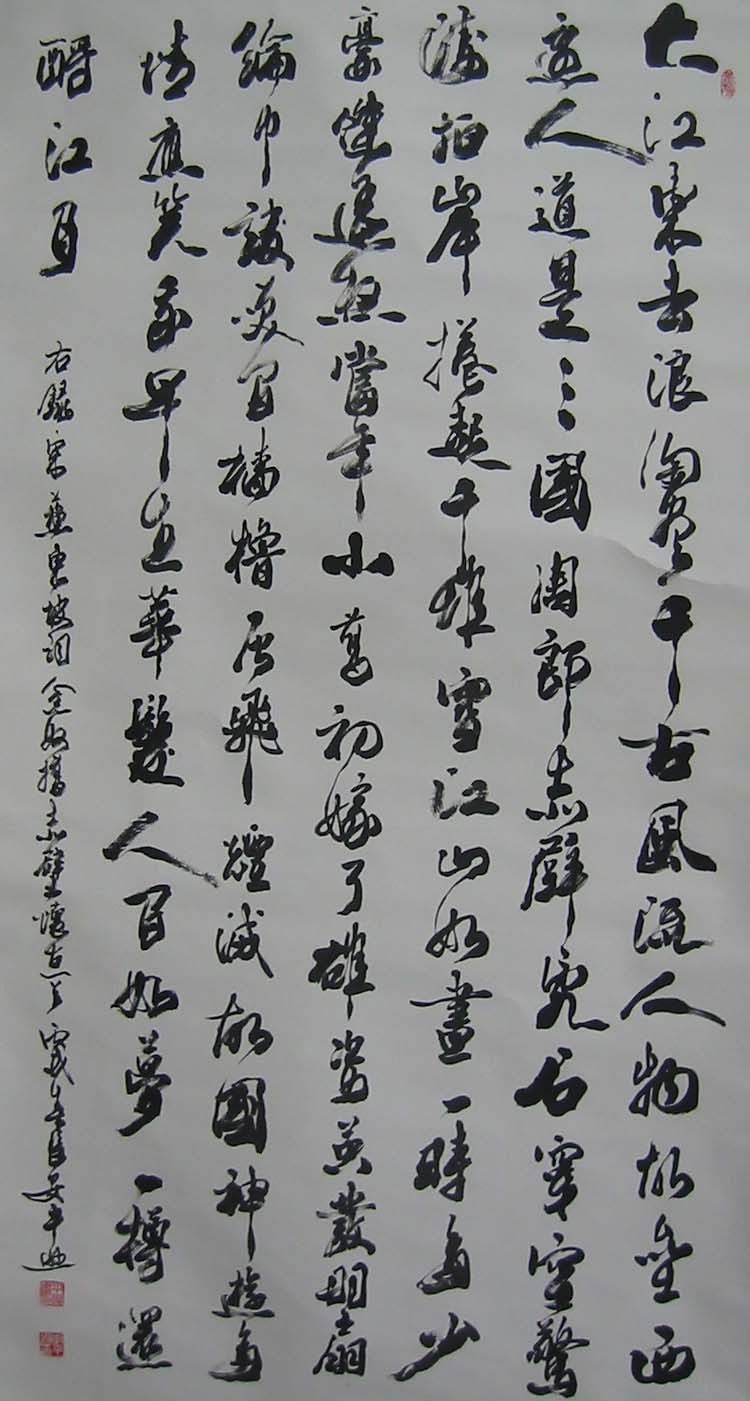 大江東去浪淘盡千古風流人物故壘西
邊人道是三國周郎赤壁亂石穿空驚
濤拍岸捲起千堆雪江山如畫一時多少
豪傑遙想當年小喬初嫁了雄姿英發羽扇
綸巾談笑間檣櫓灰飛煙滅故國神遊多
情應笑我早生華髮人間如夢一樽還
酹江月
右錄宋蘇東坡詞念奴嬌赤壁懷古